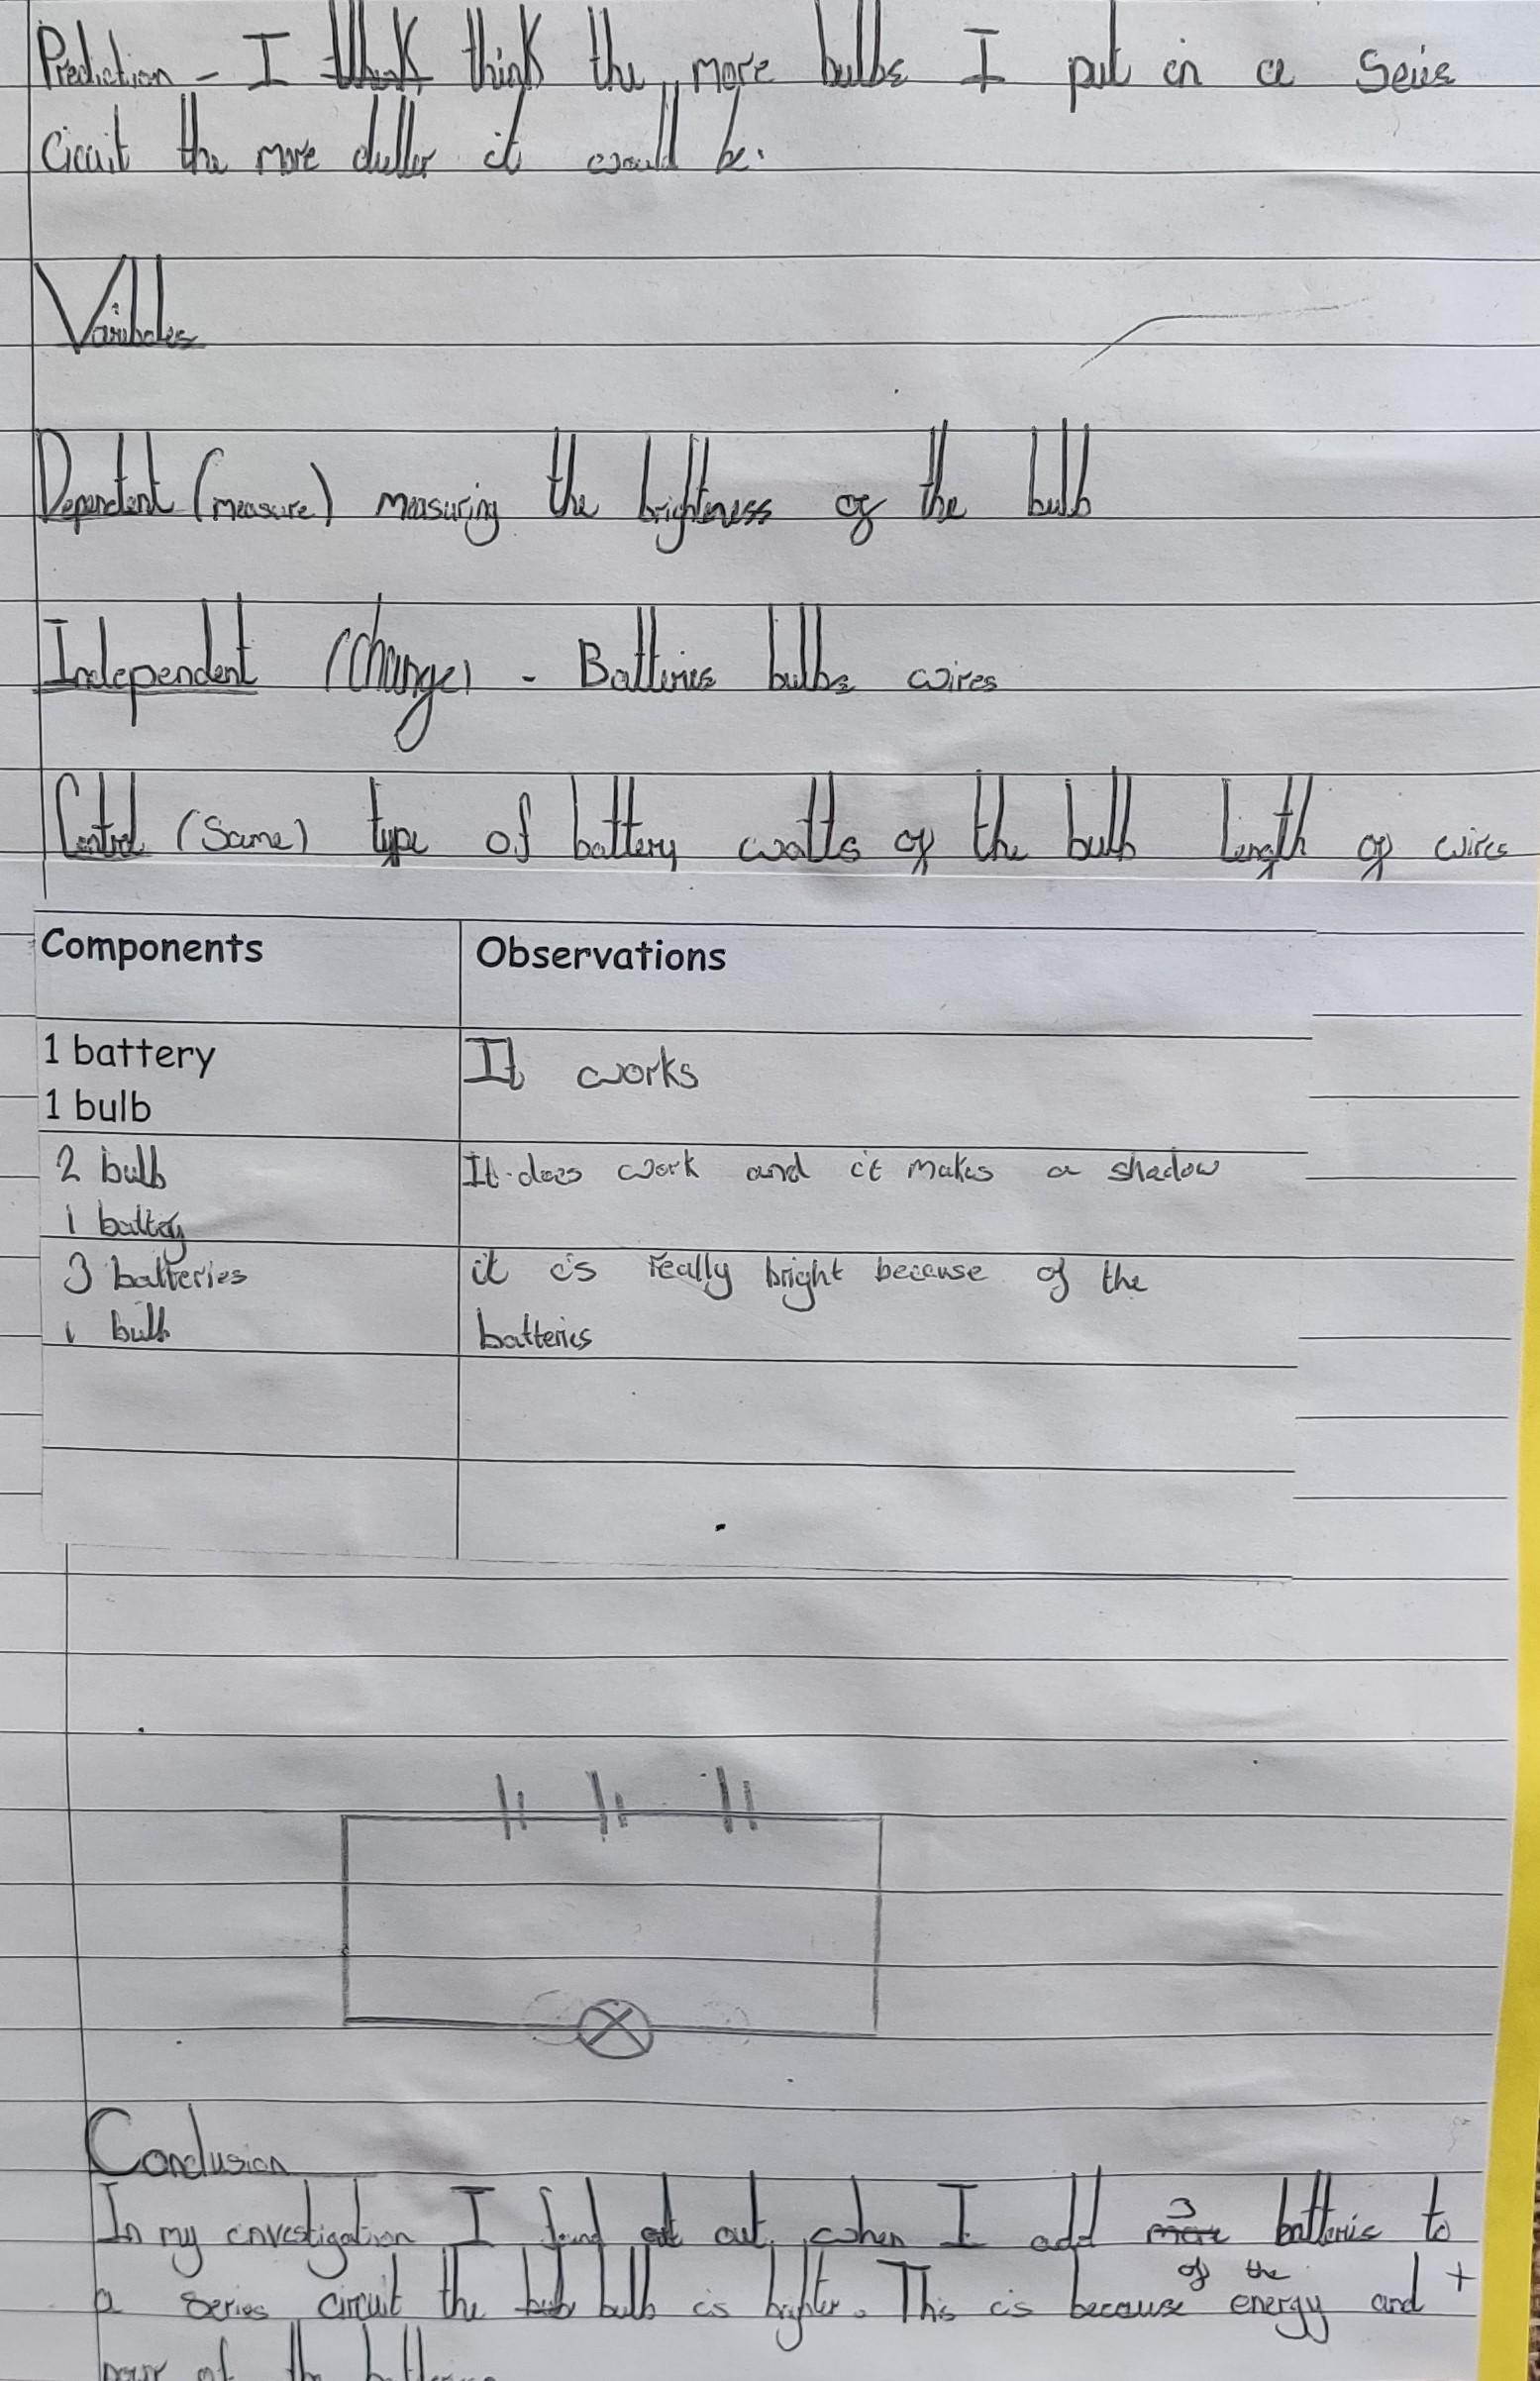 Prediction - I think think the more bulbs I put in a Seies
Cicuit the more duller it would be.
Varibales
Dependent (measure) measuring the brighteness of the bulb
Independent (Change) - Batteries bulbs wires
Control (Same) type of battery watts of the bulb length of wires
Components Observations
1 battery It works
1 bulb
2 bulb It does work and it makes a shadow
1 battery
3 batteries it is really bright because of the
1 bulb batteries
Conclusion
In my investigation I found out out when I add more 3 batteries to
a series circuit the bulb bulb is brighter. This is because of the energy and +
power of the